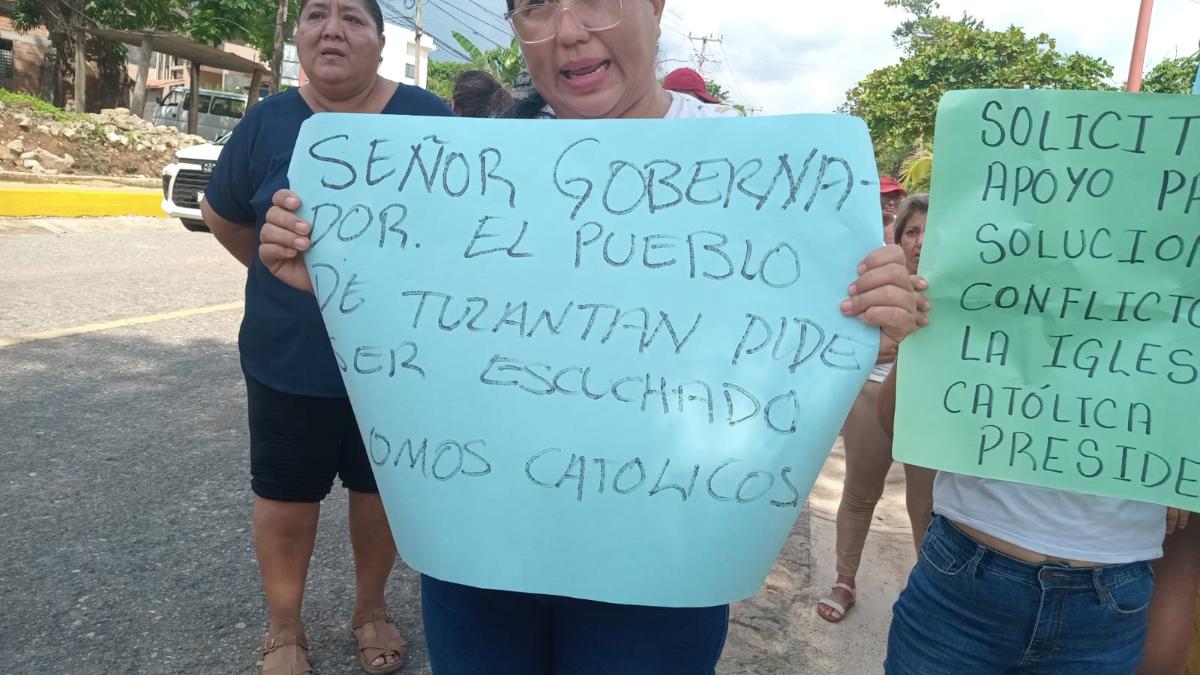 SEÑOR GOBERNA-
DOR. EL PUEBLO
DE TUZANTAN PIDE
SER ESCUCHADO
OMOS CATOLICOS
SOLICIT
APOYO PA
SOLUCION
CONFLICTO
LA IGLES
CATÓLICA
PRESIDE